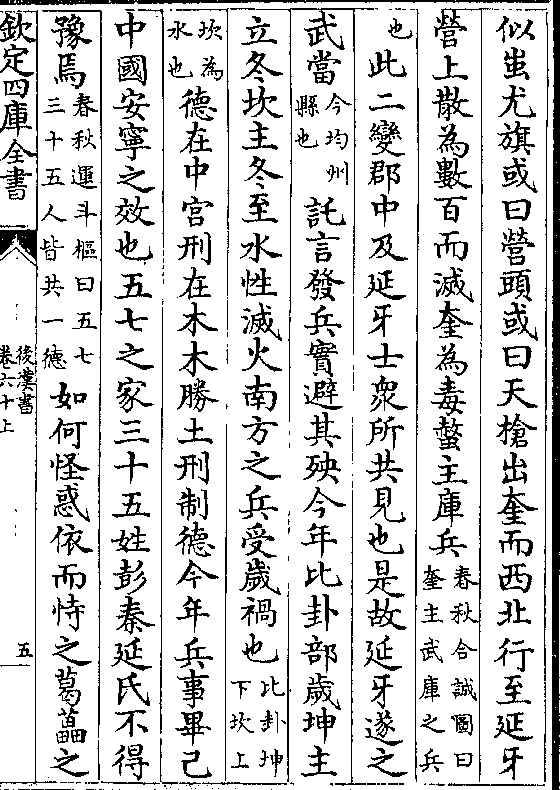 似蚩尤旗或曰營頭或曰天槍出奎而西北行至延牙
營上散為數百而滅奎為毒螫主庫兵春秋合誠圖曰奎主武庫之兵
也此二變郡中及延牙士衆所共見也是故延牙遂之
武當今均州縣也託言發兵實避其殃今年比卦部歲坤主
立冬坎主冬至水性滅火南方之兵受歲禍也比卦坤下坎上
坎為水也德在中宮刑在木木勝土刑制德今年兵事畢已
中國安寧之效也五七之家三十五姓彭秦延氏不得
豫焉春秋運斗樞曰五七三十五人皆共一德如何怪惑依而恃之葛藟之
欽定四庫全書
後漢書
卷六十上
五